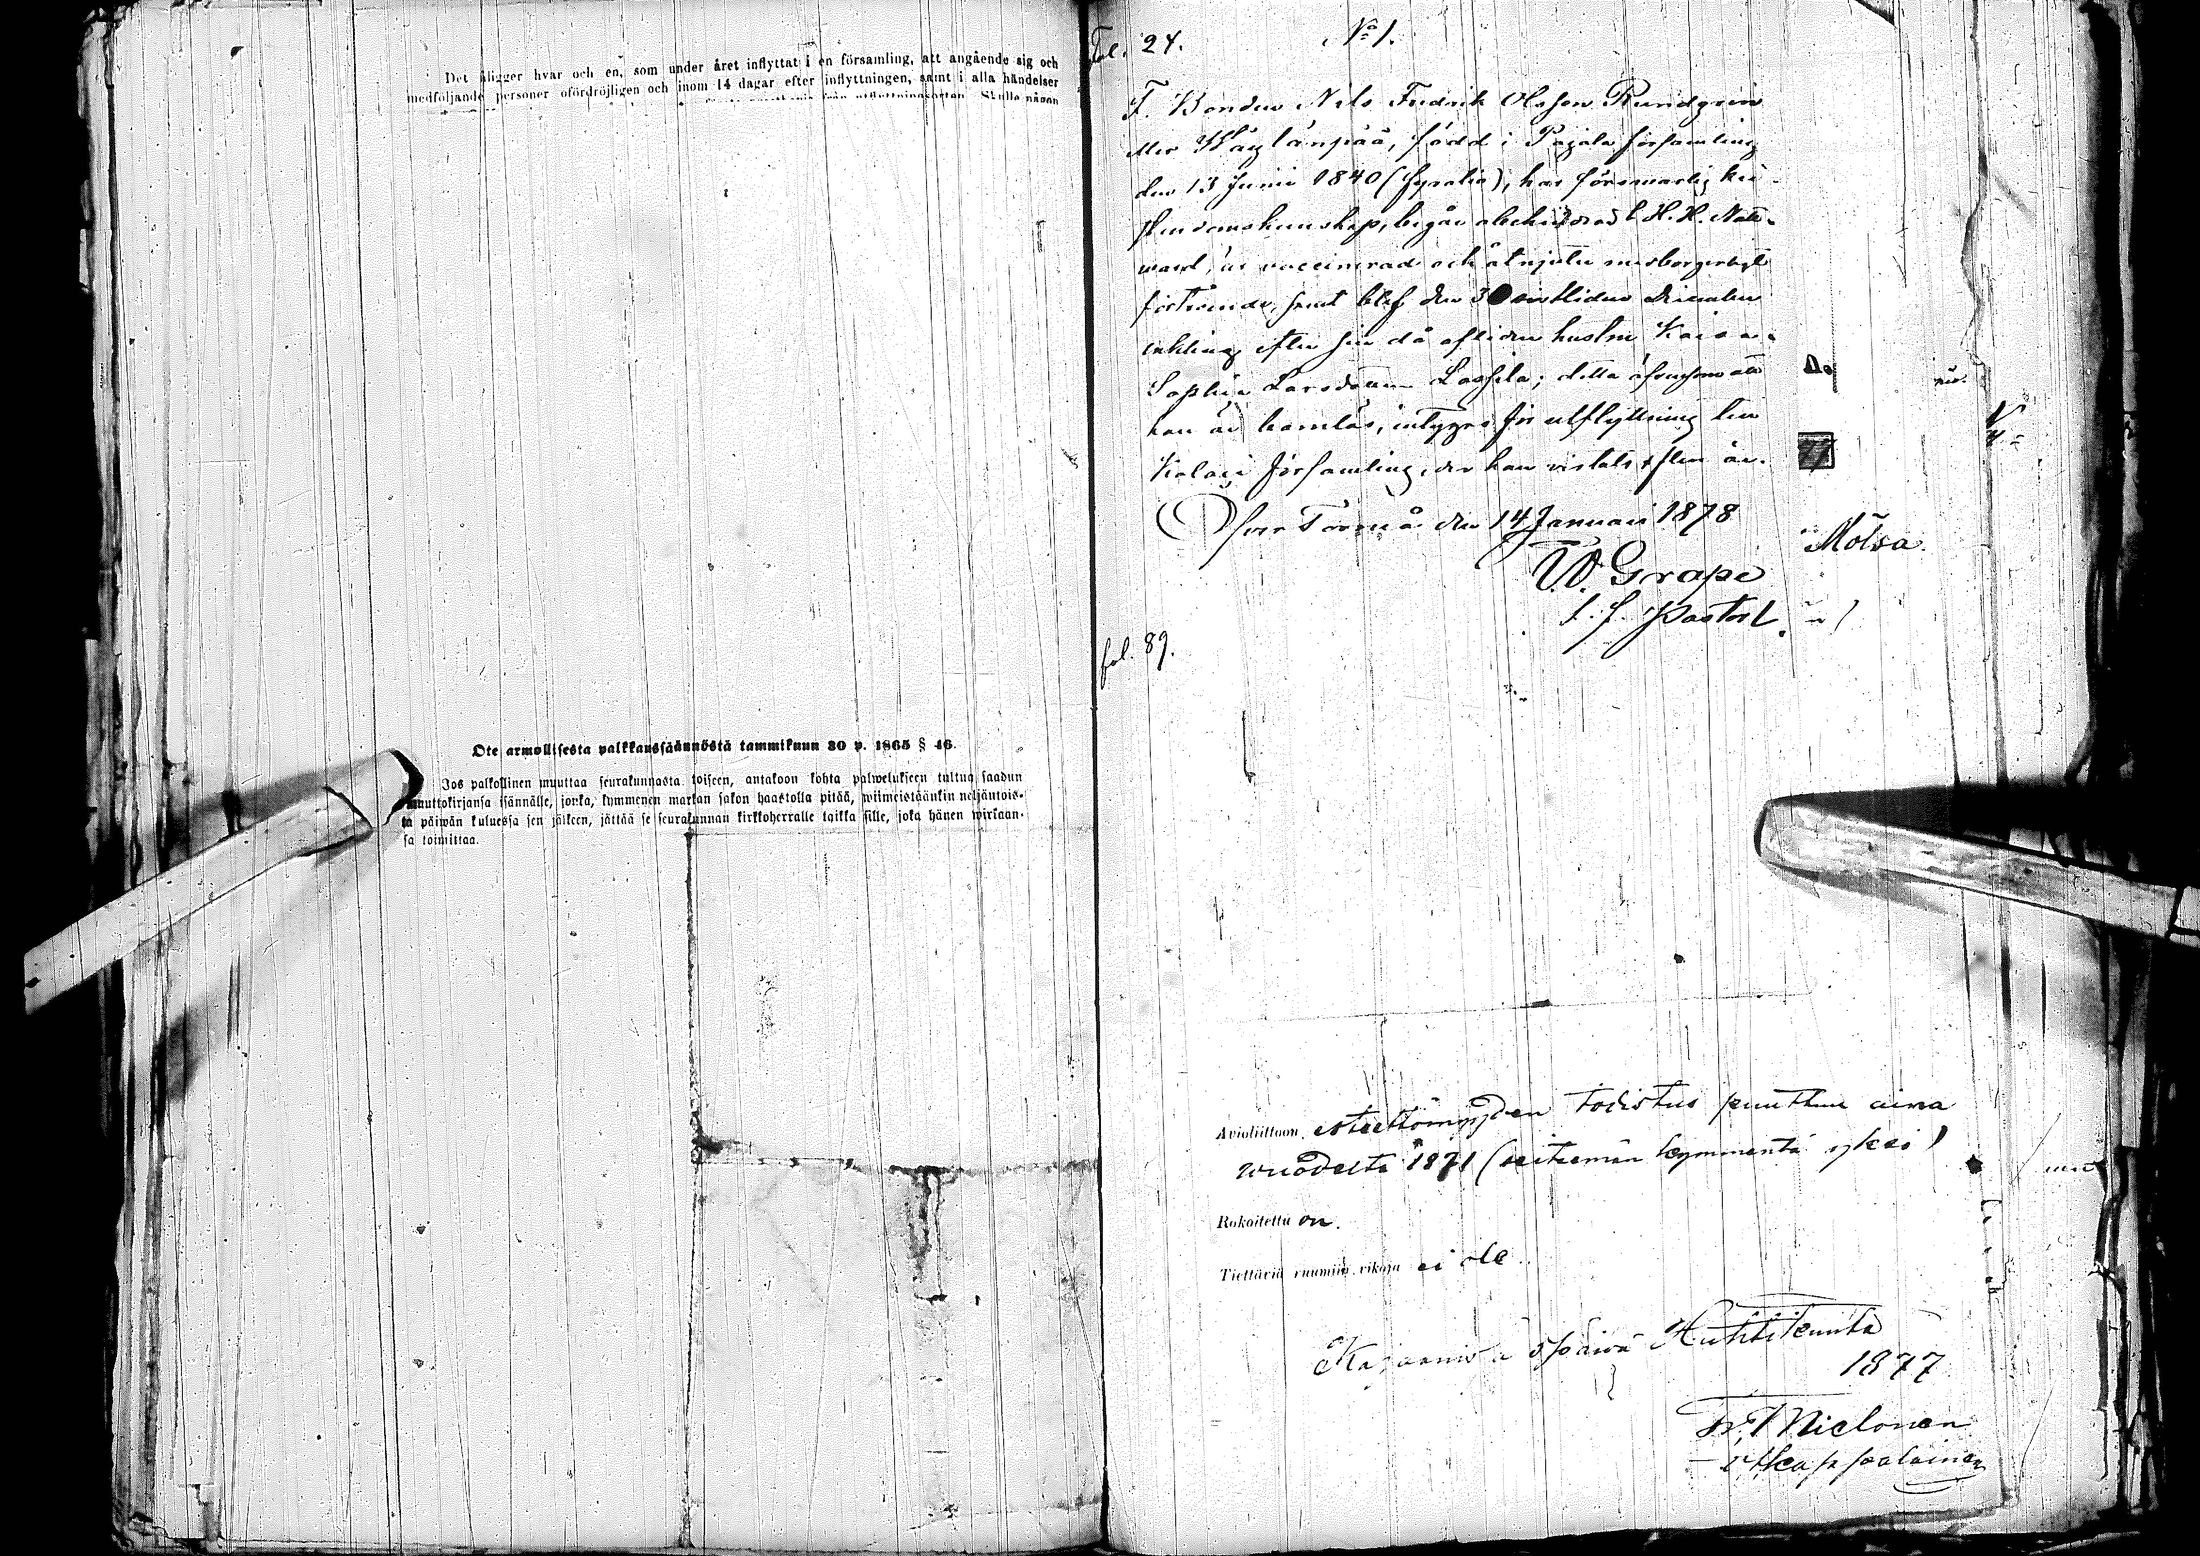 Det åligger hvar och en, som under året inflyttat i en församling, att angående sig och
medföljande personer ofördröjligen och inom 14 dagar efter inflyttningen, samt i alla händelser
från utflyttningsorten. Skulle någon
Ote armollisesta palkkaussäännöstä tammikuun 30 p. 1865 § 46.
Jos palkollinen muuttaa seurakunnasta toiseen, antakoon kohta palwelukseen tultua saadun
muuttokirjansa isännälle, jonka, kymmenen markan sakon haastolla pitää, wiimeistäänkin neljäntois-
ta päiwän kuluessa sen jälkeen, jättää se seurakunnan kirkkoherralle taikka sille, joka hänen wirkaan-
sa toimittaa.
Fol. 24.
No 1.
F. Bonden Nils Fredrik Olsson Rundgren
eller född i Pajala församling
den 13 Junii 1840 (fyratio), har försvarlig kri-
stendomskunskap, begår H. H. Natt-
vard, är vaccinerad och åtnjuter medborgerligt
förtroende, samt blef den 30 sistliden December
enkling efter sin då aflidna hustru Kaisa
Sophia Larsdotter Lassila; detta äfvensom att
han är barnlös, intygas för utflyttning till
Kolari församling, der han vistats flera år.
Öfver Torneå den 14 Januari 1878
W. Grape
t. f. Pastor
No
77
Mölsä.
fol. 89.
Avioliittoon esteettömyyden todistus puuttuu aina
wuodesta 1871 (seitsemän kymmentä yksi)
Rokoitettu on.
Tiettäviä ruumiin vikoja ei ole.
Kajaanissa 5 päivä Huhtikuuta
1877
Fr. Mielonen
v t kappalainen